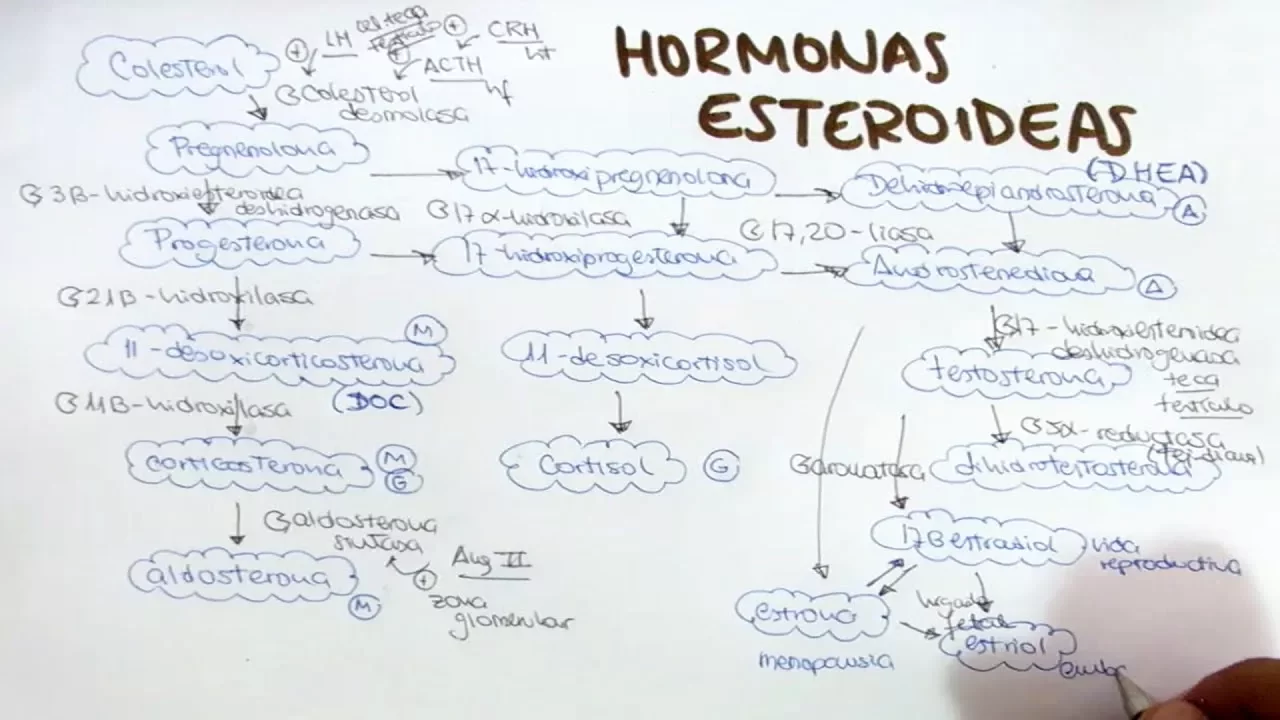 HORMONAS
ESTEROIDEAS
Colesterol
LH
cel. teca
testículo
CRH
ht
ACTH
hf
Colesterol
desmolasa
Pregnenolona
17-hidroxipregnenolona
(DHEA)
Dehidroepiandrosterona
A
3B-hidroxiesteroidea
deshidrogenasa
17α-hidroxilasa
17,20-liasa
Progesterona
17-hidroxiprogesterona
Androstenediona
A
21B-hidroxilasa
17-hidroxiesteroidea
deshidrogenasa
M
11-desoxicorticosterona
11-desoxicortisol
testosterona
teca
testículo
11B-hidroxilasa
(DOC)
5α-reductasa
corticosterona
M
G
Cortisol
G
aromatasa
dihidrotestosterona
aldosterona
sintasa
Ang II
+
zona
glomerular
aldosterona
M
17B estradiol
vida
reproductiva
estrona
menopausia
hígado
fetal
estriol